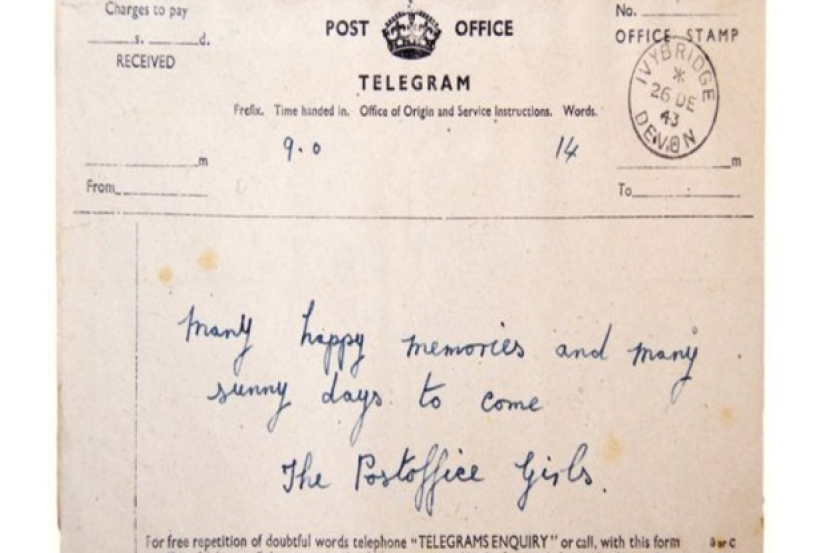 Charges to pay
s. d.
RECEIVED
POST OFFICE
TELEGRAM
Prefix. Time handed in. Office of Origin and Service Instructions. Words.
9.0 14
m
From
No.
OFFICE STAMP
IVYBRIDGE
*
26 DE
43
DEVON
m
To
Many happy memories and many
sunny days to come
The Postoffice Girls.
For free repetition of doubtful words telephone "TELEGRAMS ENQUIRY" or call, with this form
B or C